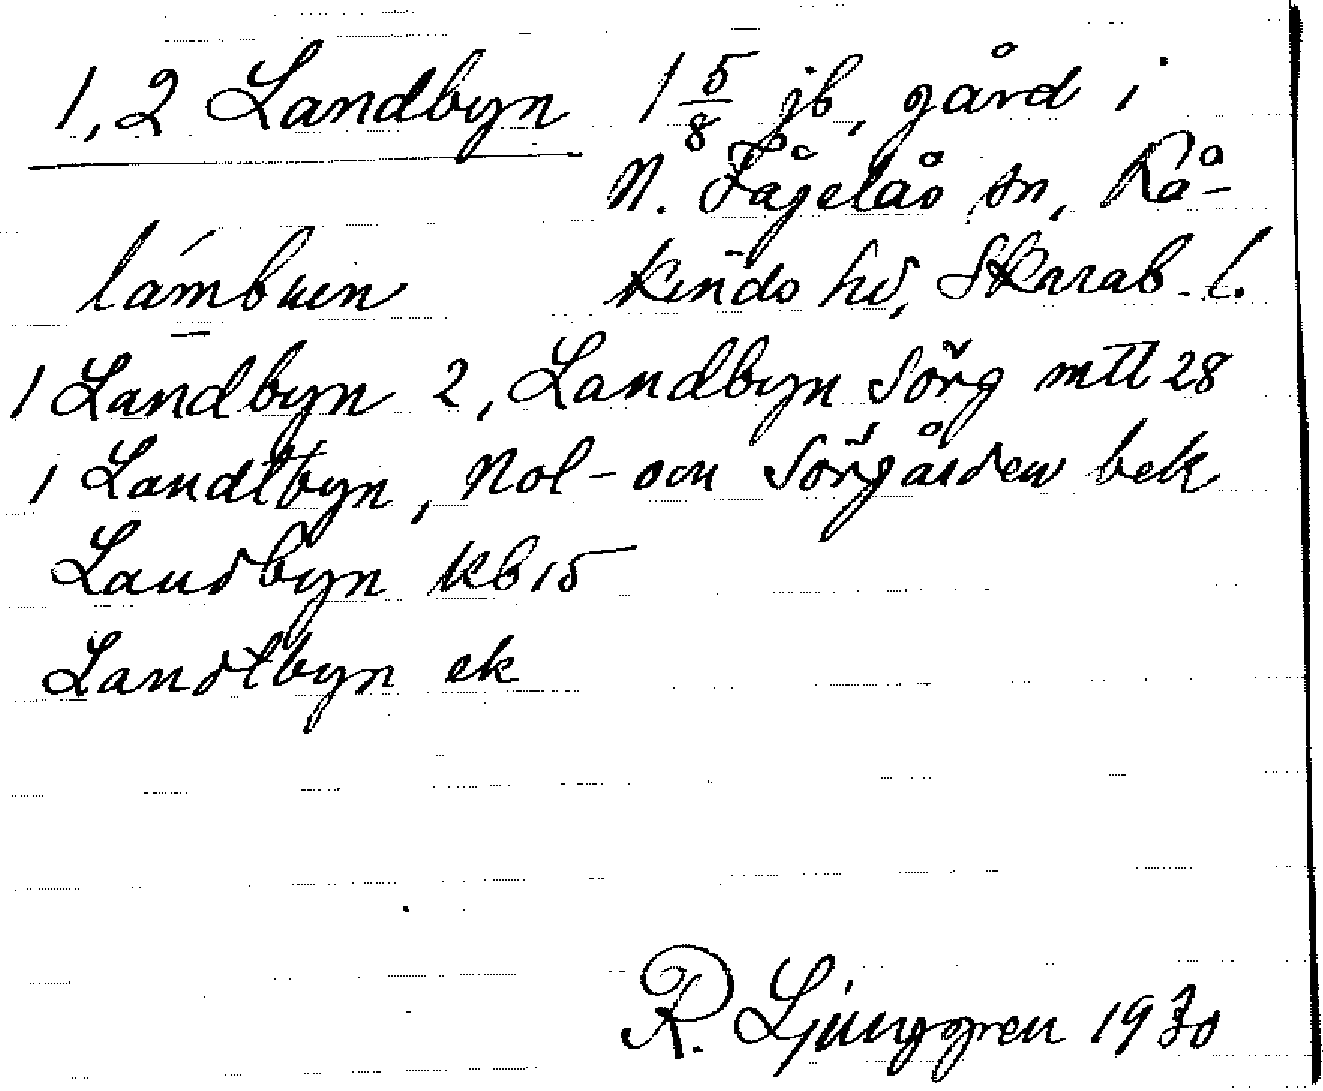 1,2 Landbyn 1 5/8 jb, gård i
N. Fågelås sn, Kå-
lámbuin kinds hd, Skarab. l.
1 Landbyn 2, Landbyn Sörg mtl 28
1 Landtbyn, Nol- och Sörgården bek
Landbyn kb 15
Landtbyn ek
R. Ljunggren 1930